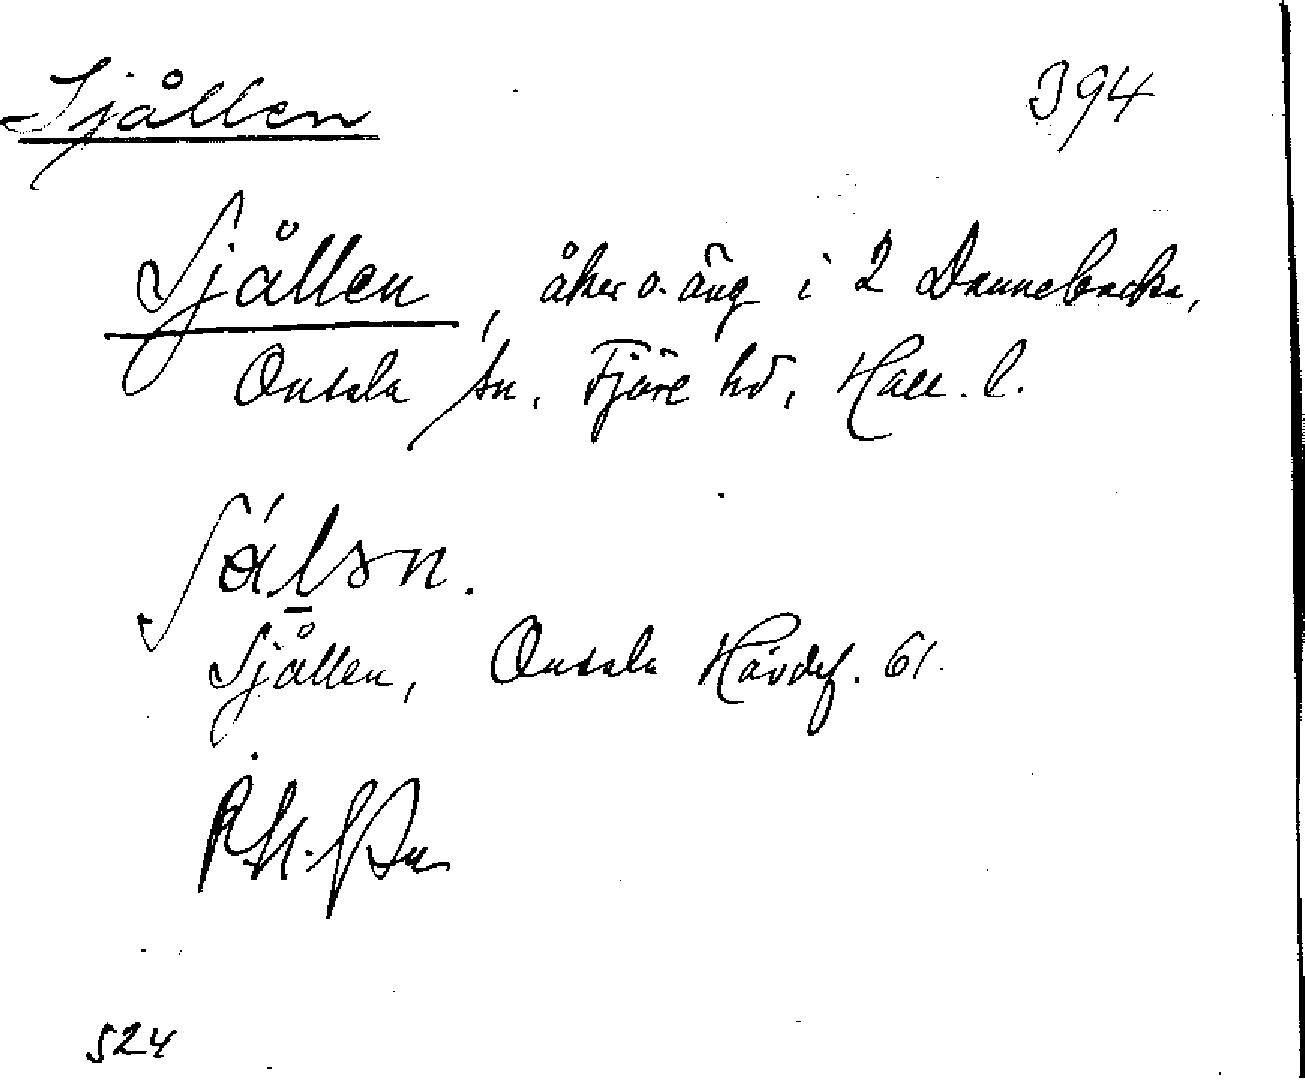 Sjållen 394
Sjållen, åker o. äng i 2 Dannebacka,
Onsala sn. Fjäre hd, Hall. l.
Sjållen, Onsala Hävdef. 61.
524